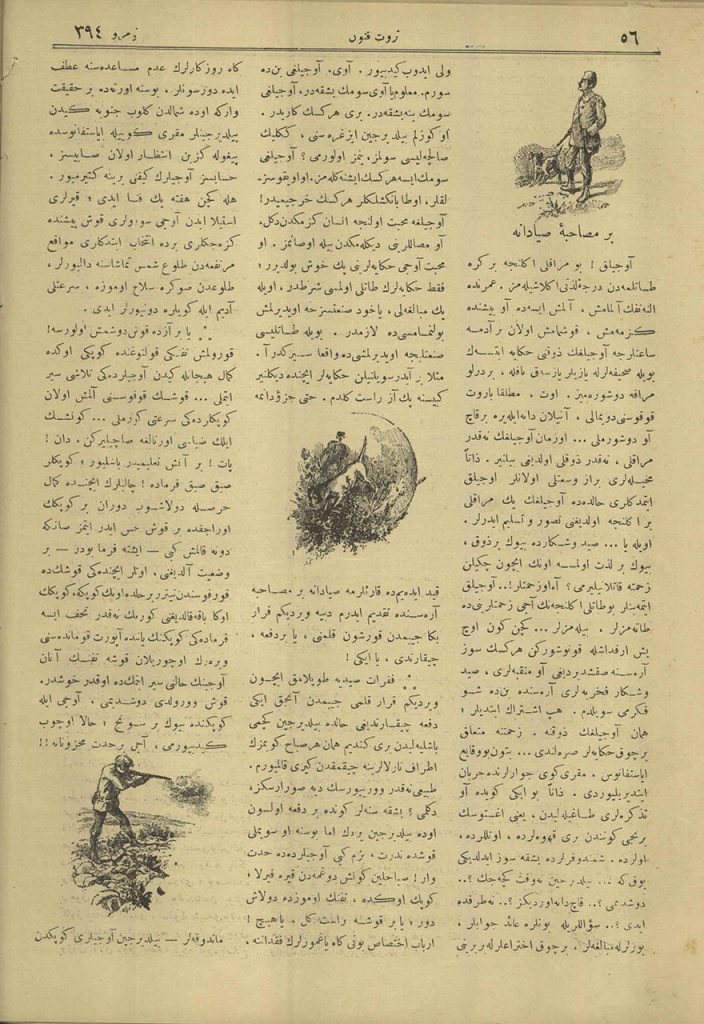 ٥٦
ثروت فنون
نومرو ٣٩٤
بر مصاحبهٔ صیادانه
آوجیلق ! بو مراقلی اکلنجه بر کره
طاتلمه‌دن درجهٔ لذتی اکلاشیله‌مز . عمرنده
النه تفنك آلمامش ، آلمش ایسه‌ده آو پیشنده
کزمه‌مش ، قوشمامش اولان بر آدمه
ساعتلرجه آوجیلغك ذوقنی حکایه ایتسه‌ك
بویله صحیفه‌لرله یازیلر یازسه‌ق نافله ، بر درلو
مراقه دوشورەمیز . اوت ، مطلقا باروت
قوقوسنی دویمالی ، آتیلان دانه ایله یره بر قاچ
آو دوشورملی ... اوزمان آوجیلغك نه‌قدر
مراقلی ، نه‌قدر ذوقلی اولدیغی بیلنیر . ذاتاً
مخیله‌لری براز وسعتلی اولانلر اوجیلق
ایتمدکلری حالده‌ده آوجیلغك پك مراقلی
بر اکلنجه اولدیغنی تصور و تسلیم ایدرلر .
اویله یا ... صید وشکارده بیوك بر ذوق ،
بیوك بر لذت اولمسه اونك ایچون چکیلن
زحمته قاتلانیلیرمی ؟ آه او زحمتلر !.. آوجیلق
ایتمه‌ینلر بو طاتلی اکلنجه‌نك آجی زحمتلرینی ده
طانه‌مزلر . بیله‌مزلر ... کچن کون اوچ
بش ارقداشله قونوشورکن هرکسك سوز
آره‌سنه صقشدیردیغی آو منقبه‌لری ، صید
وشکار فخریه‌لری آره‌سنده بن‌ده شو
فکرمی سویلدم . هپ اشتراك ایتدیلر ؛
همان آوجیلغك ذوقنه ، زحمتنه متعلق
بر چوق حکایه‌لر صره‌لندی ... بتون بو وقایع
ایاستفانوس ، مقری کوی جوارلرنده جریان
ایتدیریلیوردی . ذاتاً بو ایکی کویده آو
تذکره‌لری طاغیله‌لیدن . یعنی اغستوسك
برنجی کونندن بری قهوه‌لرده ، اوتللرده ،
اولرده . شمندوفرلرده بشقه سوز ایدلدیکی
یوق که ... بیلدرجین نه‌وقت کچه‌جك ؟..
دوشدیمی ؟.. قاچ دانه اوردیکز ؟.. نه‌طرفده
ایدی ؟.. سؤاللریله بونلره عائد جوابلر ،
یوزلرله مبالغه‌لر . بر چوق اختراعلر له بربرینی
ولی ایدوب کیدییور . آوی، آوجیلغی بن‌ده
سورم. معلوم یا آوی سومك بشقه‌در، آوجیلغی
سومك ینه بشقه‌در. بری هرکسك کاریدر .
او کوزلم بیلدیرجین ایزغره‌سنی ، ککلیك
صالچه‌لیسی سولمز، ینمز اولورمی ؟ آوجیلغی
سومك ایسه هرکسك ایشنه کلمه‌مز. او اویقوسز-
لقلر، اوطابانکشلکلر هرکسك خرجیمیدر!
آوجیلغه محبت اولنجه انسان کزمکدن دکل،
آو مصاللرینی دیکله‌مکدن بیله اوصانمز . او
محبت آوجی حکایه‌لرینی پك خوش بولدیرر ؛
فقط حکایه‌لرك طاتلی اولمسی شرطدر، اویله
پك مبالغه‌لی ، یاخود صنعتسزجه اویدیرلمش
بولنمامسی‌ده لازمدر . بویله طاتلیسی
صنعتلیجه اویدیرلمشی ده واقعا سییرکدر آ.
مثلا بر آیدر سویلنیلن حکایه‌لر ایچنده دیکلنیر
کیبسنه پك آز راست کلدم . حتی جزؤدانمه
قید ایدیم‌ده قارئلرمه صیادانه بر مصاحبه
آره‌سنده تقدیم ایدرم دییه ویردیکم قرار
بکا جیبمدن قورشون قلمنی ، یا بر دفعه ،
چیقارتدی ، یا ایکی !
⁂ فقرات صیدیه طوپلامق ایچون
ویردیکم قرار قلمی جیبمدن آنجق ایکی
دفعه چیقارتدیغی حالده بیلدیرجین کچمی
باشلیه‌لیدن بری کندیم همان هر صباح کویمزك
اطراف تارلالرینه چیقمقدن کیری قالمیورم .
طبیعی نه‌قدر وورییورسك دیه صورارسکز،
دکلمی ؟ بشقه سنه‌لر کونده بر دفعه اولسون
اوده بیلدیرجین یردك اما بوسنه او سویملی
قوشده ندرت ، بزم کبی آوجیلرده‌ده حدت
وار ! صباحلین کونش دوغمه‌دن قیره فیرلا ؛
کوپك اوکده ، تفنك اوموزده دولاش
دور ؛ یا بر قوشه راست کل ، یا هیچ !
ارباب اختصاص بونی کاه یاغمورلرك فقداننه .
کاه روزکارلرك عدم مساعده‌سنه عطف
ایده دورسونلر ، بوسنه اورته‌ده بر حقیقت
وارکه اوده شمالدن کلوب جنوبه کیدن
بیلدیرجینلر مقری کوییله ایاستفانوسده
پیغوله گزین انتظار اولان صاییسز ،
حسابسز آوجیلرك کیفنی یرینه کتیرمیور .
هله کچن هفته پك فنا ایدی ؛ قیرلری
استیلا ایدن آوجی سورولری قوش پیشنده
کزه‌جکلری یرده انتخاب ایتدکلری مواقع
مرتفعه‌دن طلوع شمس تماشاسنه دالیورلر ،
طلوعدن صوکره سلاح اوموزه ، سرعتلی
آدیم ایله کویلره دونیورلر ایدی .
⁂ یا بر آزده قوش دوشمش اولورسه!
قورولمش تفنکی قولتوغنده کوپکی اوکده
کمال هیجانله کیدن آوجیلرده‌کی تلاشی سیر
ایتملی ... قوشك قوقوسنی آلمش اولان
کوپکلرده‌کی سرعتی کورملی ... کونشك
ایلك ضیاسی اورتالغه صاچیلیرکن . دان !
پات ! بر آتش تعلیمیدر باشلیور ؛ کوپکلر
صیق صیق فرماده ! چالیلرك ایچنده کمال
حرصله دولاشوب دوران بر کوپکك
اوراجقده بر قوش حس ایدر ایتمز صانکه
دونه قالمش کبی — ایشته فرما بودر — بر
وضعیت آلدیغی، اوتلر ایچنده‌کی قوشك‌ده
قورقوسندن تیتررر برحلده اونك کوپکه، کوپکك
اوکا باقه قالدیغنی کورمك نه‌قدر تحف ایسه
فرماده‌کی کوپکك یاننده آپورت قوماندەسنی
ویره‌رك اوچوریلان قوشه تفنك آتان
آوجینك حالنی سیر ایتمك‌ده اوقدر خوشدر.
قوش وورولدی دوشدیمی ، آوجی ایله
کوپکنده بیوك بر سونج ؛ حالا اوچوب
کیدییورمی ، آجی بر حدت محزونانه !!
ماندوقه‌لر — بیلدیرجین آوجیلری کوپکدن